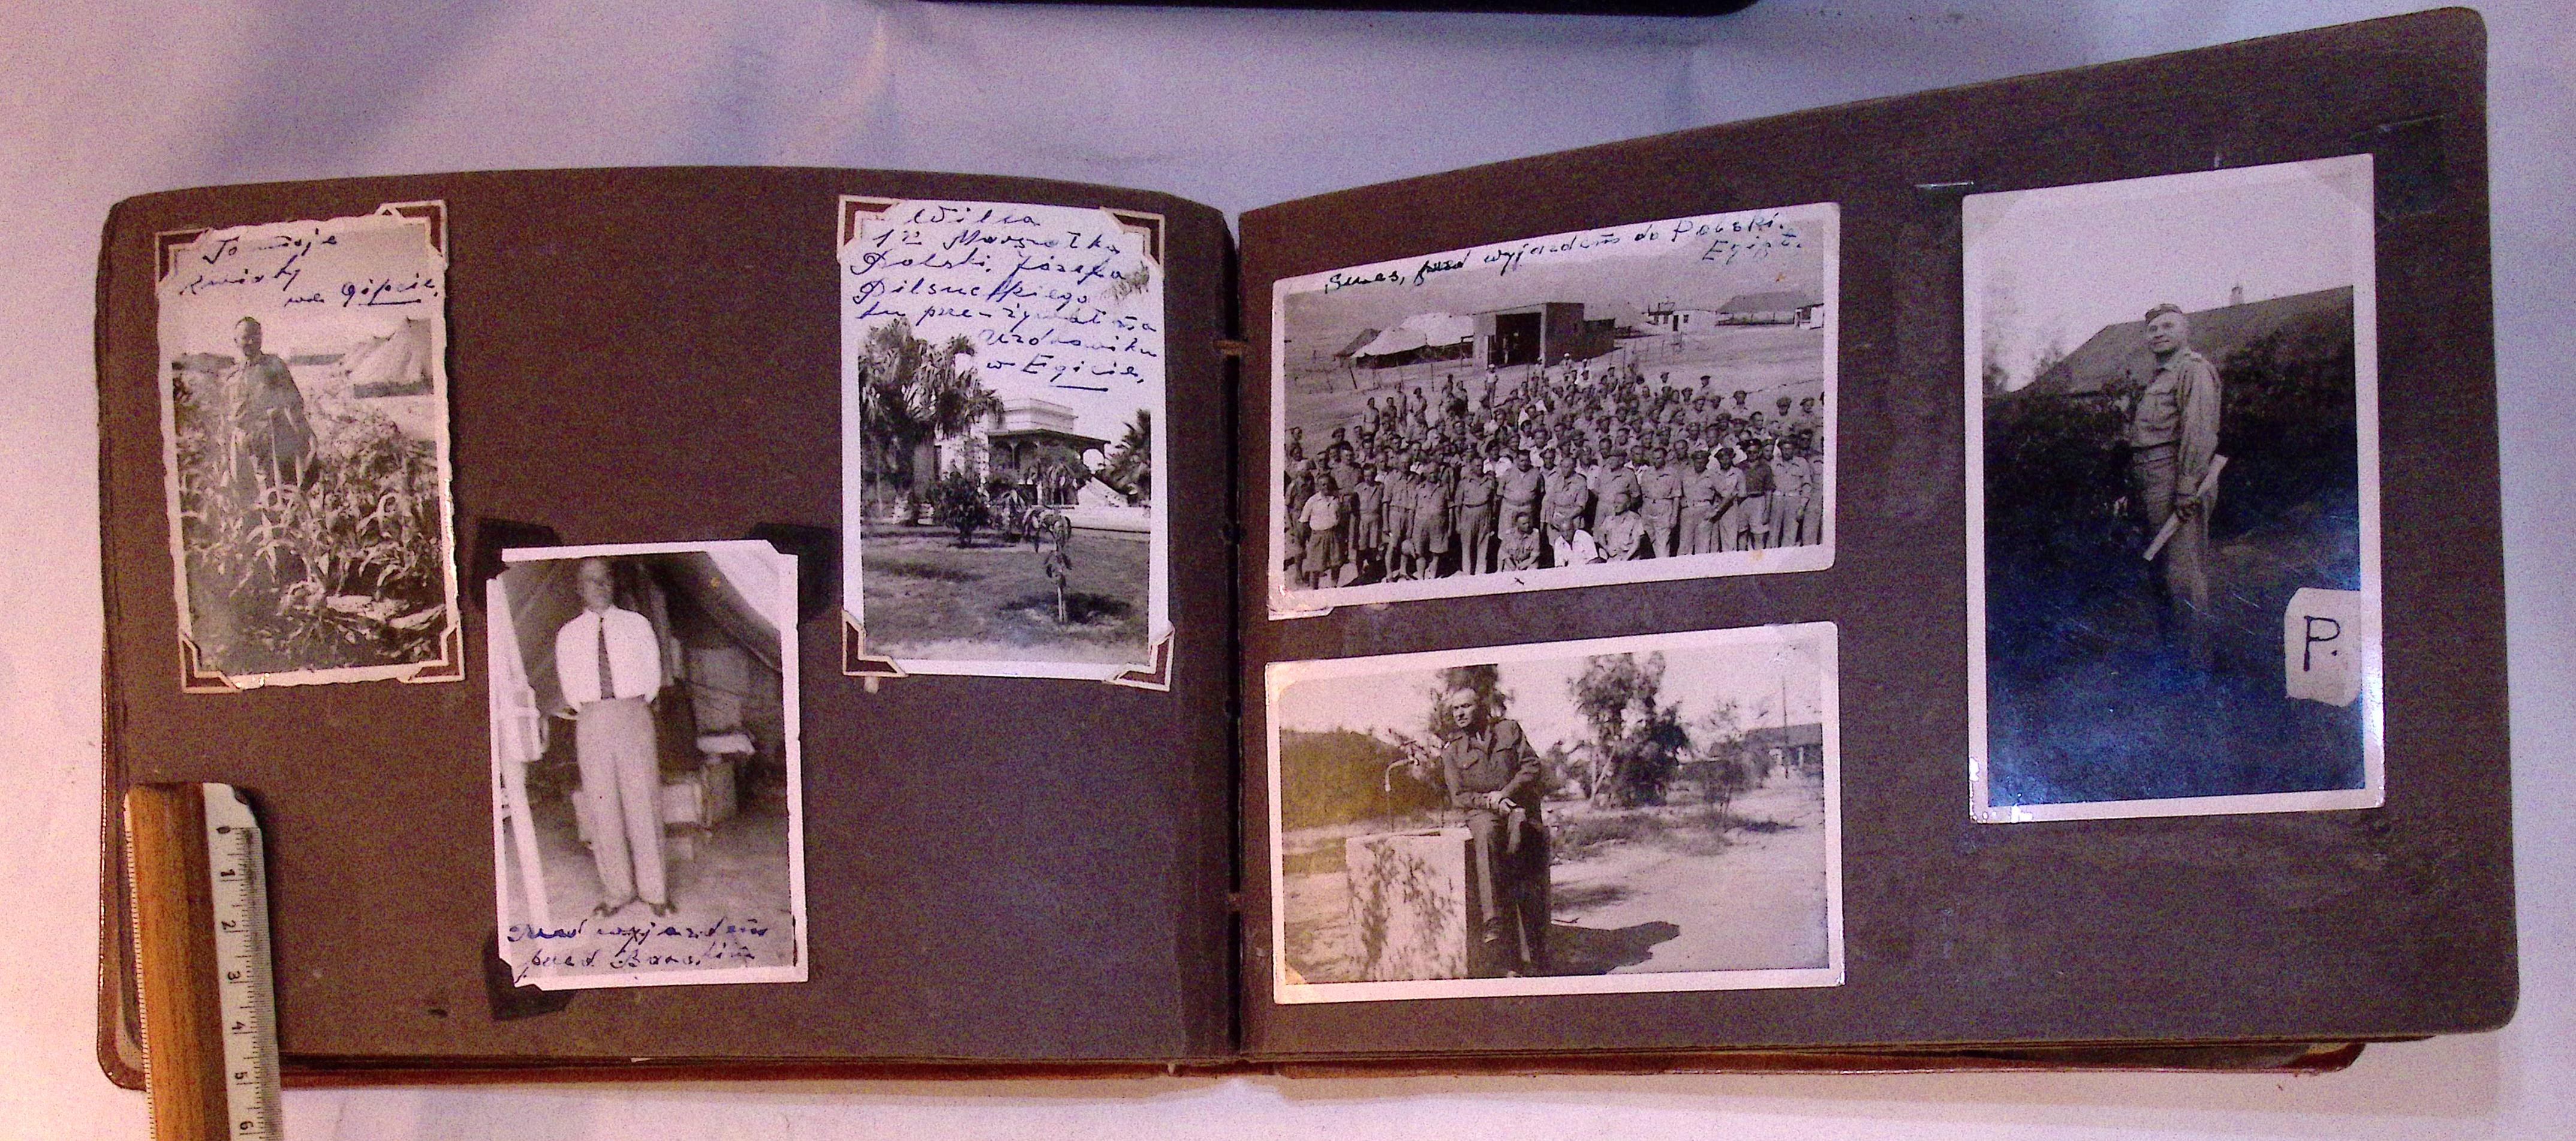 To moje
kwiaty
we Gipcie,
Willa
1º Marszałka
Polski, Józefa
Piłsuckiego
tu
w Egicie,
wyjazdem
przed
Sues, przed wyjazdem do Polski.
Egipt.
P.
0
1
2
3
4
5
6